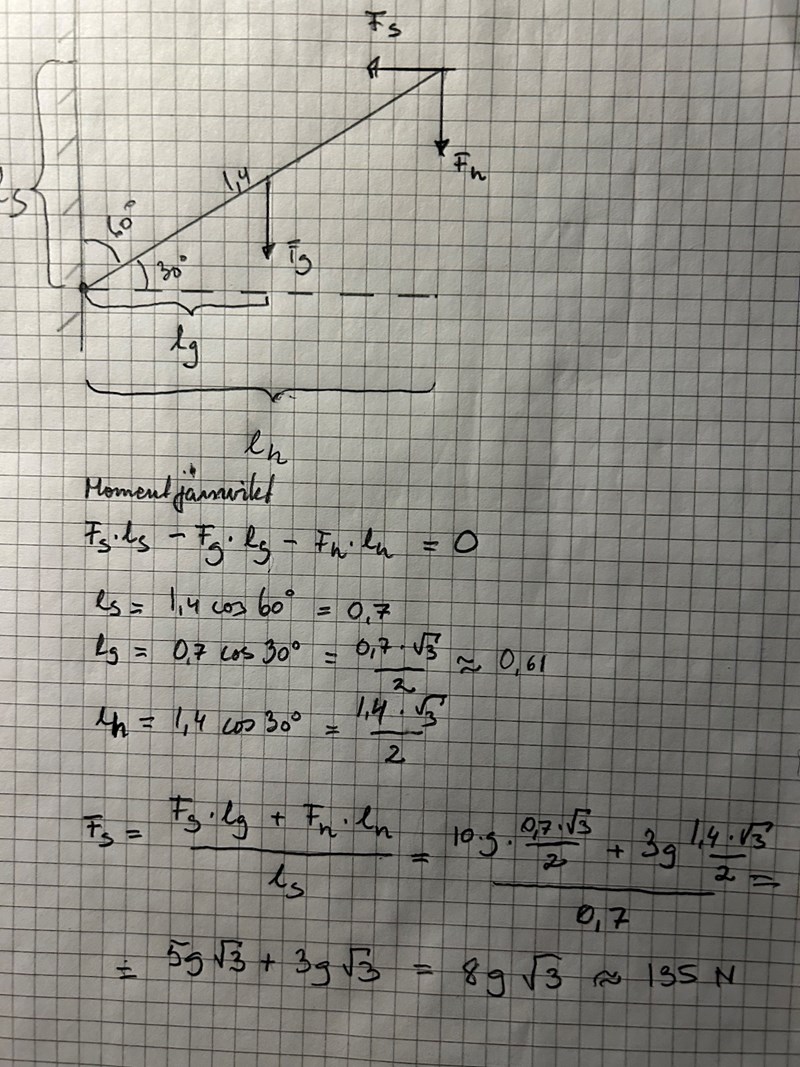 F_s
F_n
1,4
l_s
60°
F_g
30°
l_g
l_n
Momentjämvikt
F_s · l_s − F_g · l_g − F_n · l_n = 0
l_s = 1,4 cos 60° = 0,7
l_g = 0,7 cos 30° = (0,7 · √3)/2 ≈ 0,61
l_n = 1,4 cos 30° = (1,4 · √3)/2
F_s = (F_g · l_g + F_n · l_n)/l_s = (10 · g · (0,7 · √3)/2 + 3g (1,4 · √3)/2)/0,7 =
= 5g√3 + 3g√3 = 8g√3 ≈ 135 N